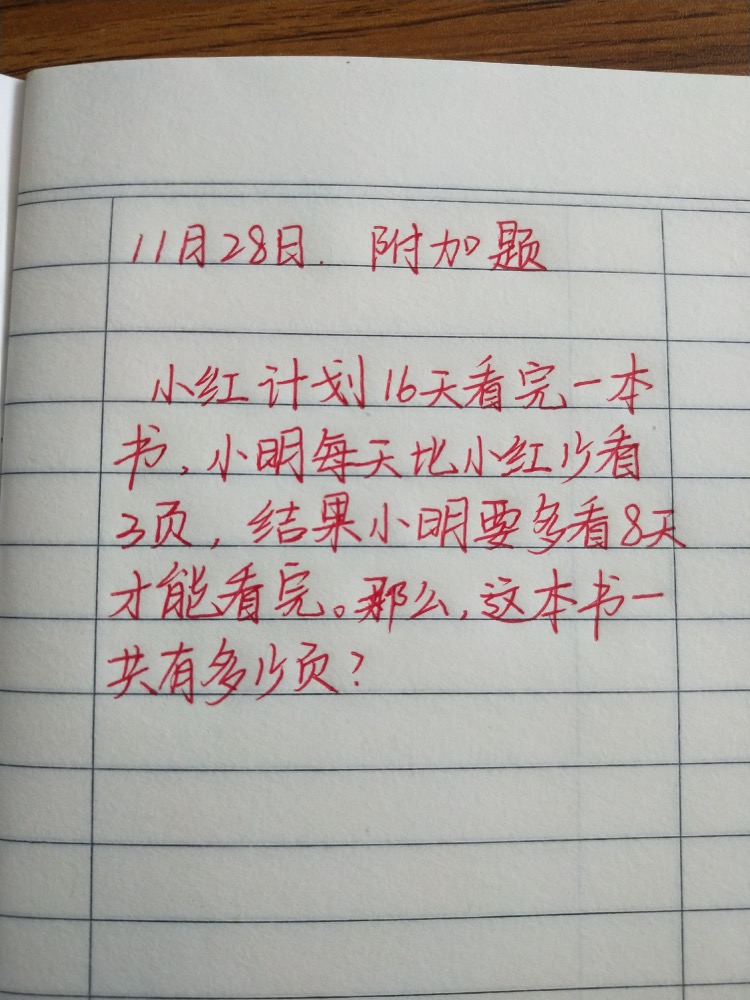 11月28日. 附加题
小红计划16天看完一本
书,小明每天比小红少看
3页,结果小明要多看8天
才能看完。那么,这本书一
共有多少页?